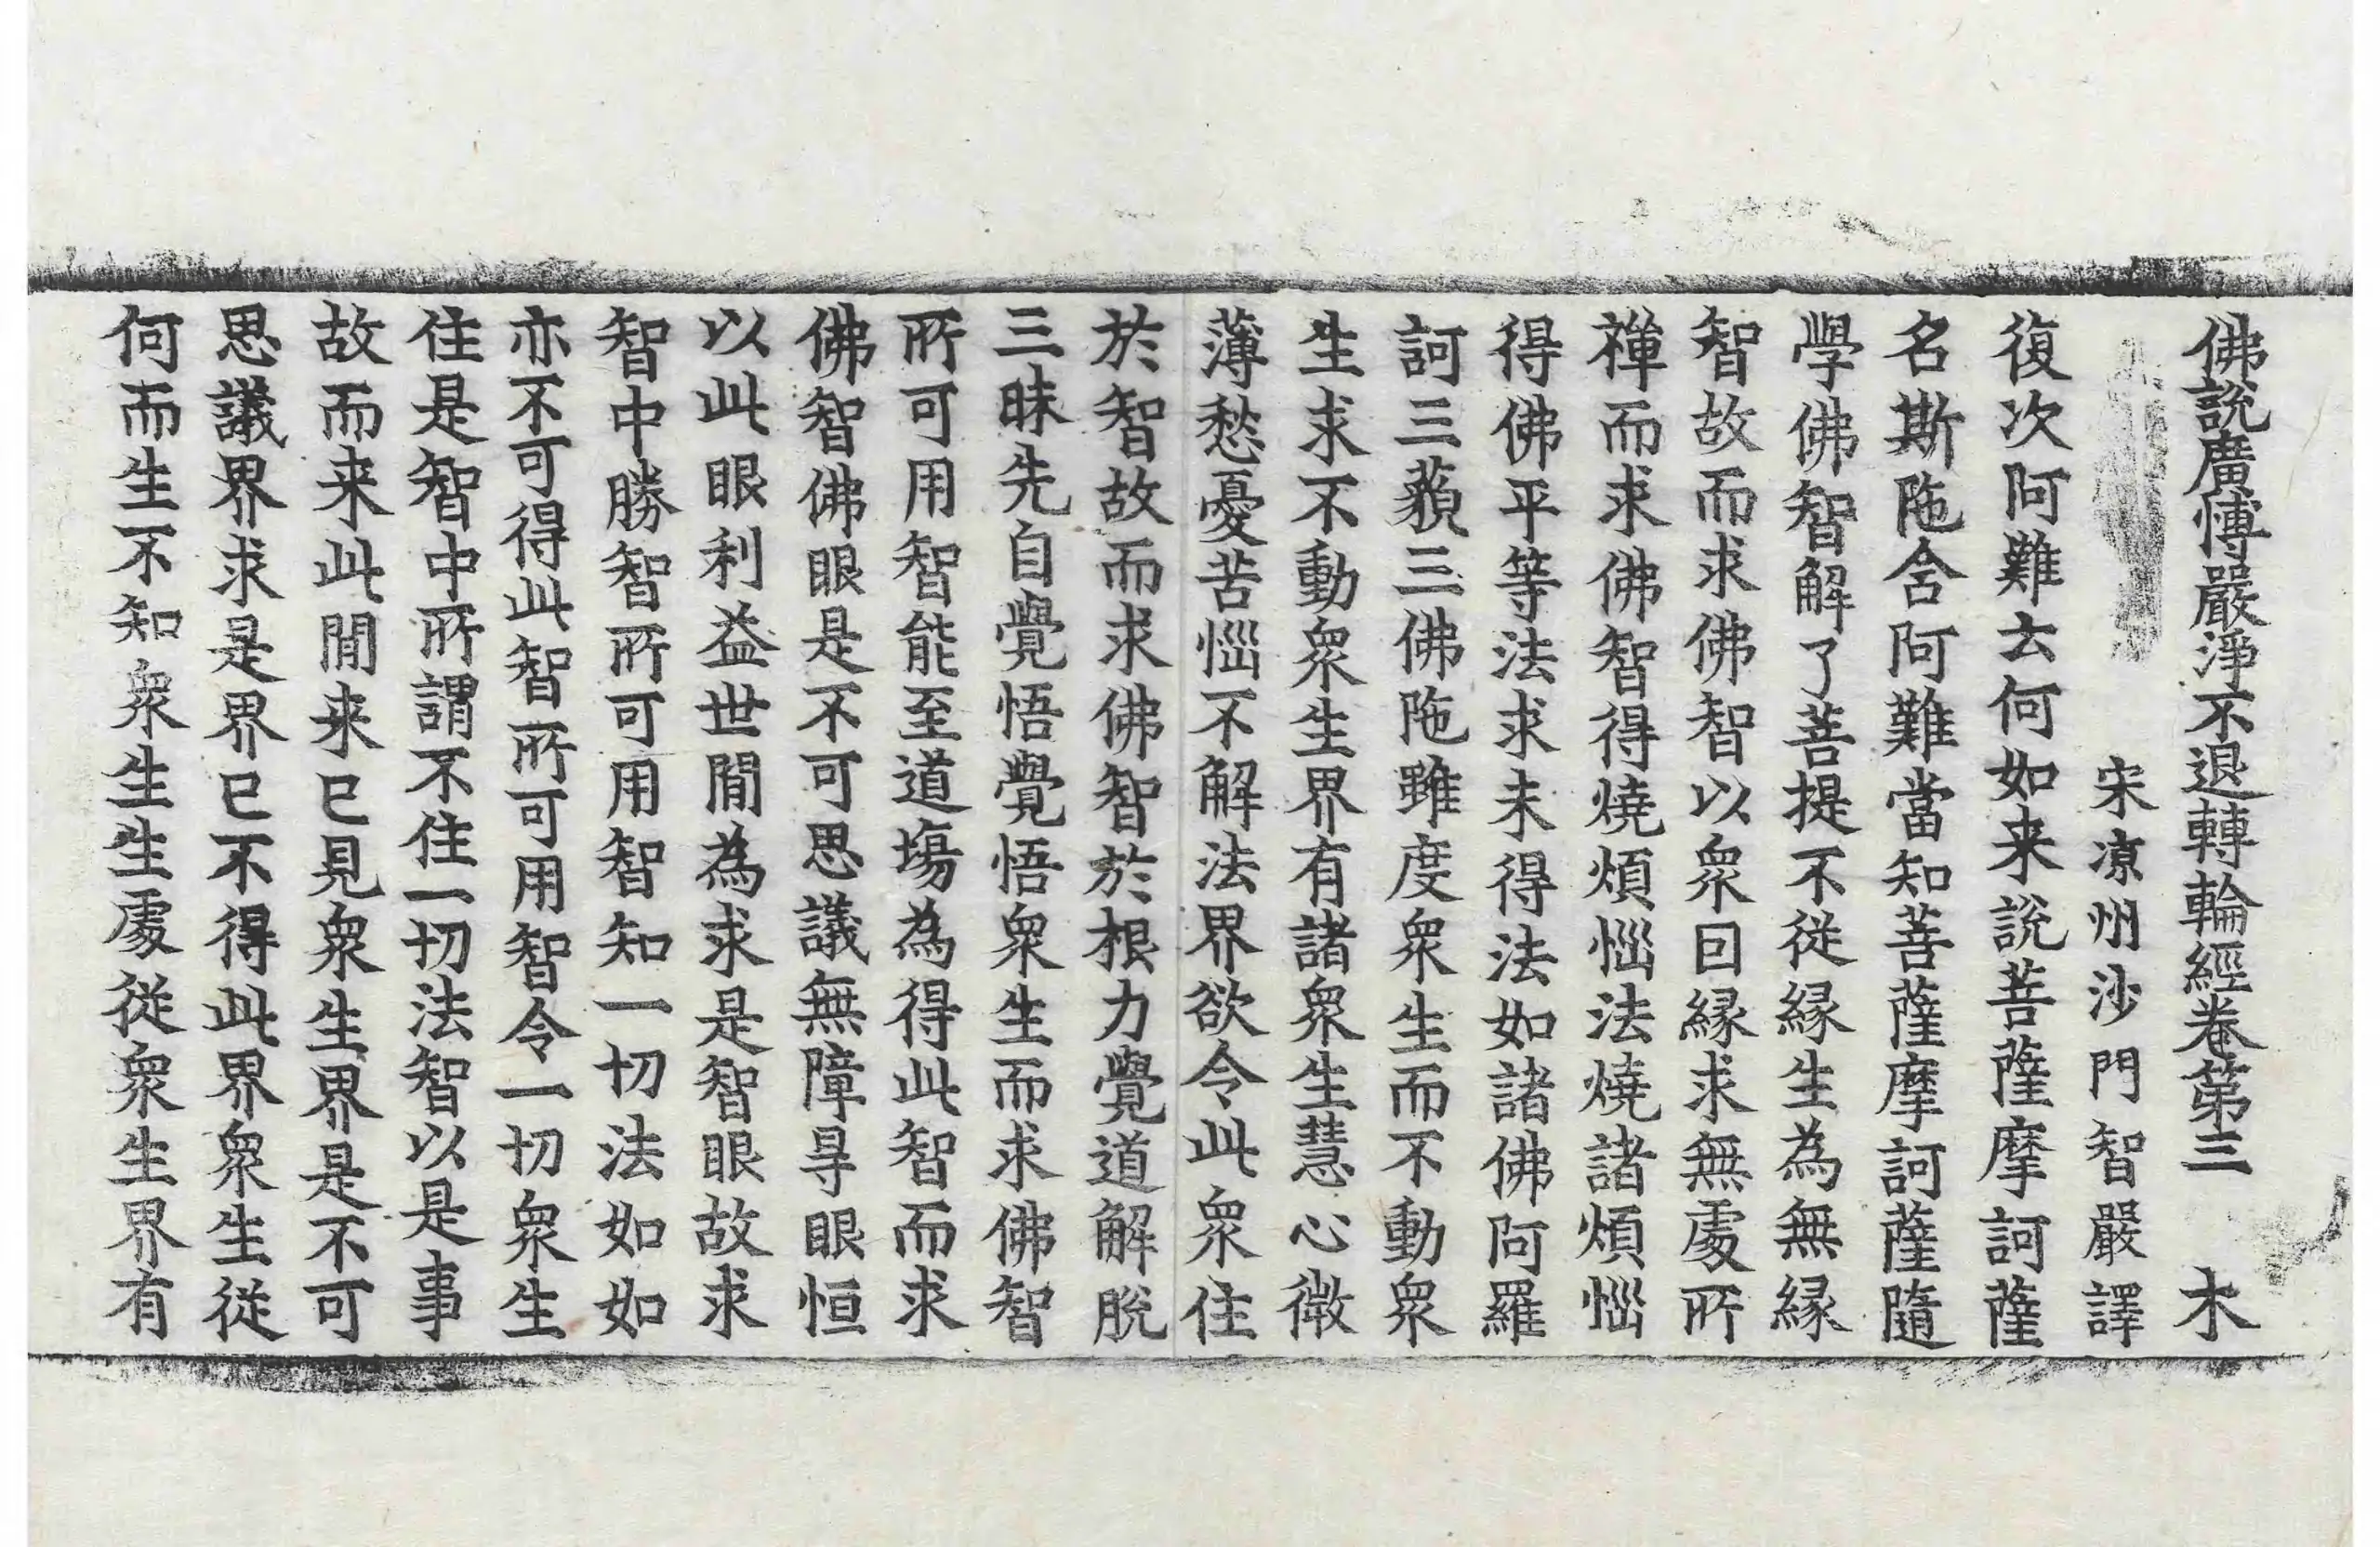 佛說廣愽嚴淨不退轉輪經卷第三　木
宋涼州沙門智嚴譯
復次阿難云何如来說菩薩摩訶薩
名斯陁含阿難當知菩薩摩訶薩隨
學佛智解了菩提不從緣生為無緣
智故而求佛智以衆回緣求無處所
禪而求佛智得燒煩惱法燒諸煩惱
得佛平等法求未得法如諸佛阿羅
訶三藐三佛陁雖度衆生而不動衆
生求不動衆生界有諸衆生慧心微
薄愁憂苦惱不解法界欲令此衆住
於智故而求佛智於根力覺道解脫
三昧先自覺悟覺悟衆生而求佛智
所可用智能至道場為得此智而求
佛智佛眼是不可思議無障㝵眼恒
以此眼利益世間為求是智眼故求
智中勝智所可用智知一切法如如
亦不可得此智所可用智令一切衆生
住是智中所謂不住一切法智以是事
故而来此間来已見衆生界是不可
思議界求是界已不得此界衆生從
何而生不知衆生生處從衆生界有